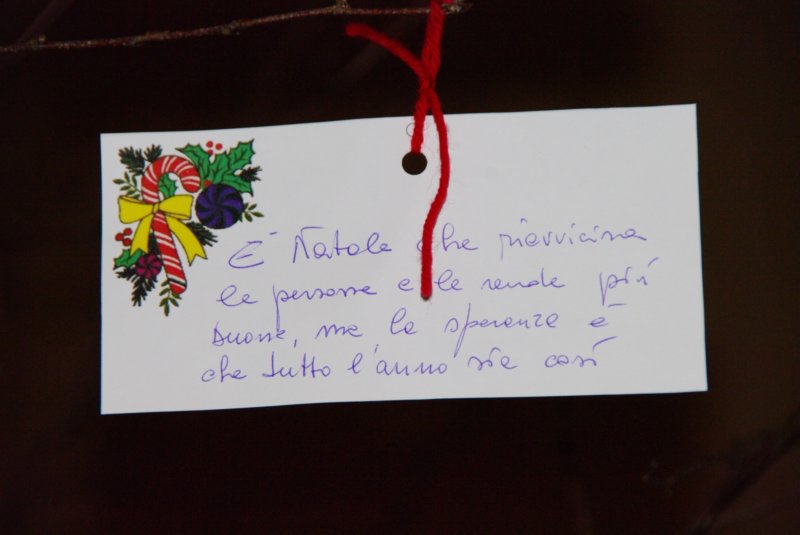 E' Natale che riavvicina
le persone e le rende più
buone, ma la speranza è
che tutto l'anno sia così